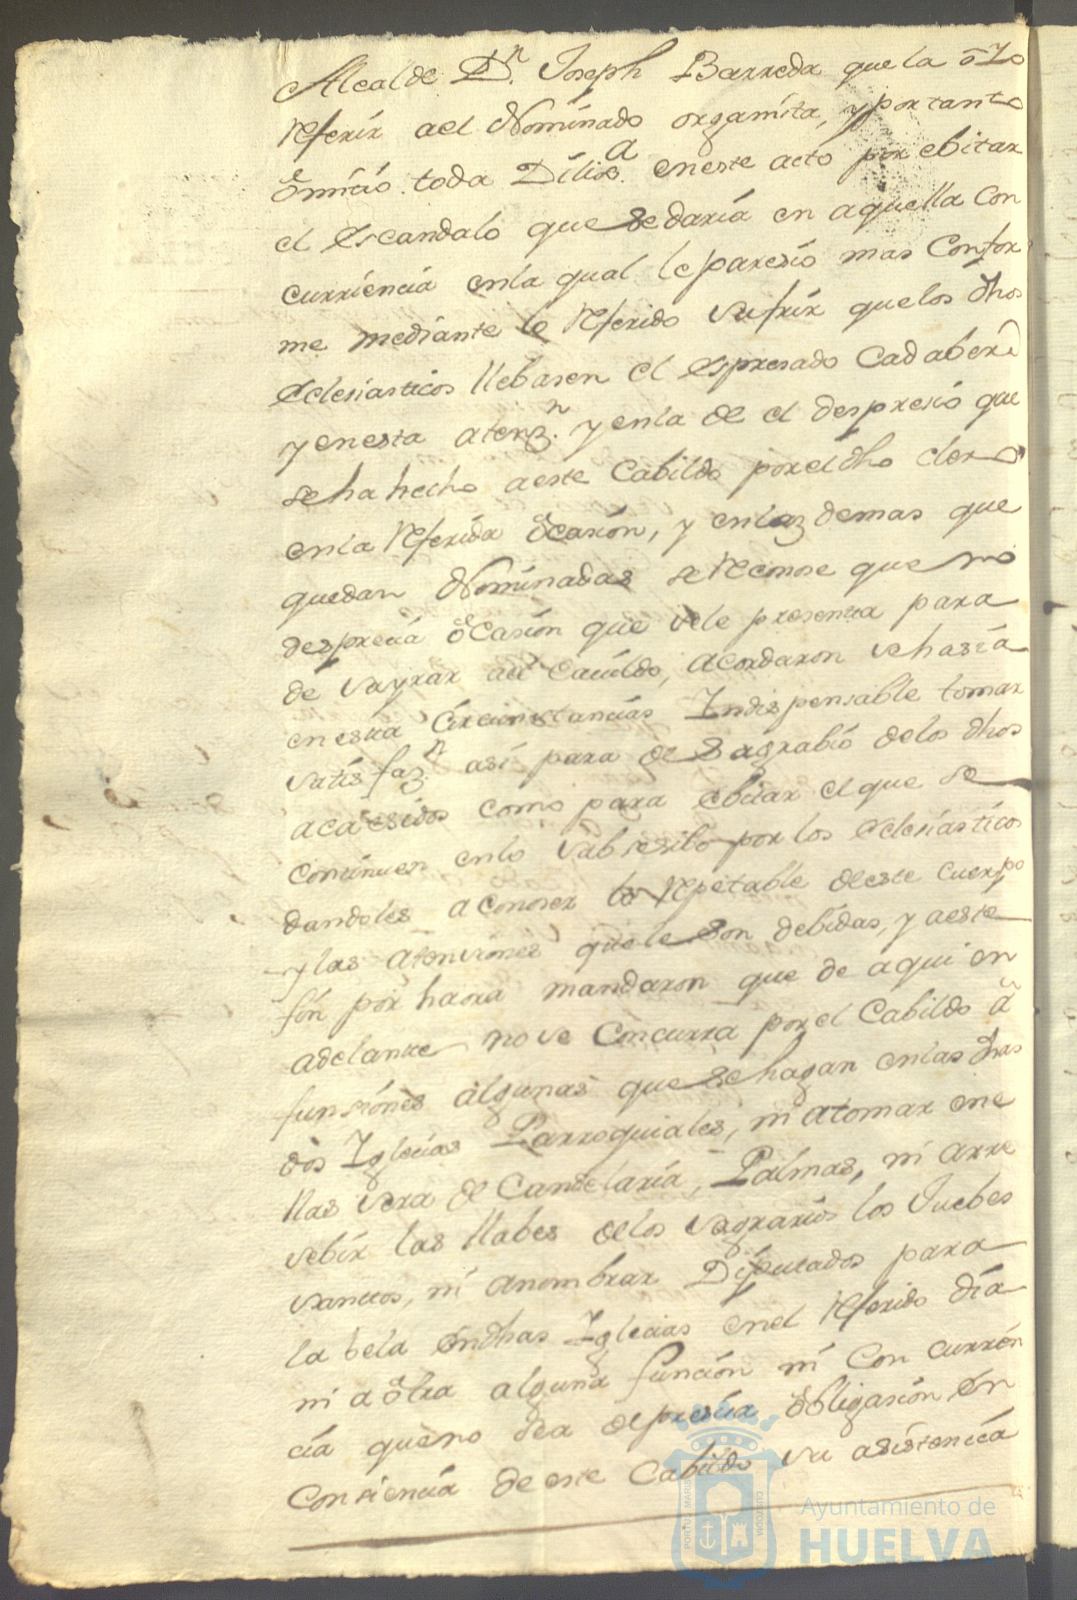 Alcalde Dn. Joseph Barreda que la oyo
Referir ael Nominado organista, y por tanto
omitio toda Dilixa. en este acto por ebitar
el escandalo que se daria en aquella con
curriencia en la qual le paresio mas confor
me mediante lo Referido sufrir que los dhos
eclesiasticos llebasen el espresado cadaber
y en esta atenzn. y en la de el despresio que
se ha hecho a este Cabildo por el dho clero
en la Referida ocasion, y en las demas que
quedan Nominadas se Reconose que no
desprecia ocasion que se le presenta para
de sayrar au Cavildo, acordaron se hasia
en estas circunstancias Indispensable tomar
satisfazn. asi para de sagrabio de los dhos
acaesidos como para ebitar el que se
continuen en lo subsesibo por los eclesiasticos
dandoles a conoser lo Repetable de este cuerpo
y las atensiones que le son debidas, y a este
fin por haora mandaron que de aqui en
adelante no se concurra por el Cabildo a
funsiones algunas que se hagan en las dhas
dos Iglecias Parroquiales, ni a tomar en e
llas sera de Candelaria, Palmas, ni a rre
sebir las llabes de los sagrarios los Juebes
santos, ni a nombrar Diputados para
la bela en dhas Iglecias en el Referido dia
ni a otra alguna funcion ni con curren
cia que no sea de presisa obligasion en
Consiencia de este Cabildo su asistencia
PORTUS MARIS
CUSTODIA
Ayuntamiento de
HUELVA